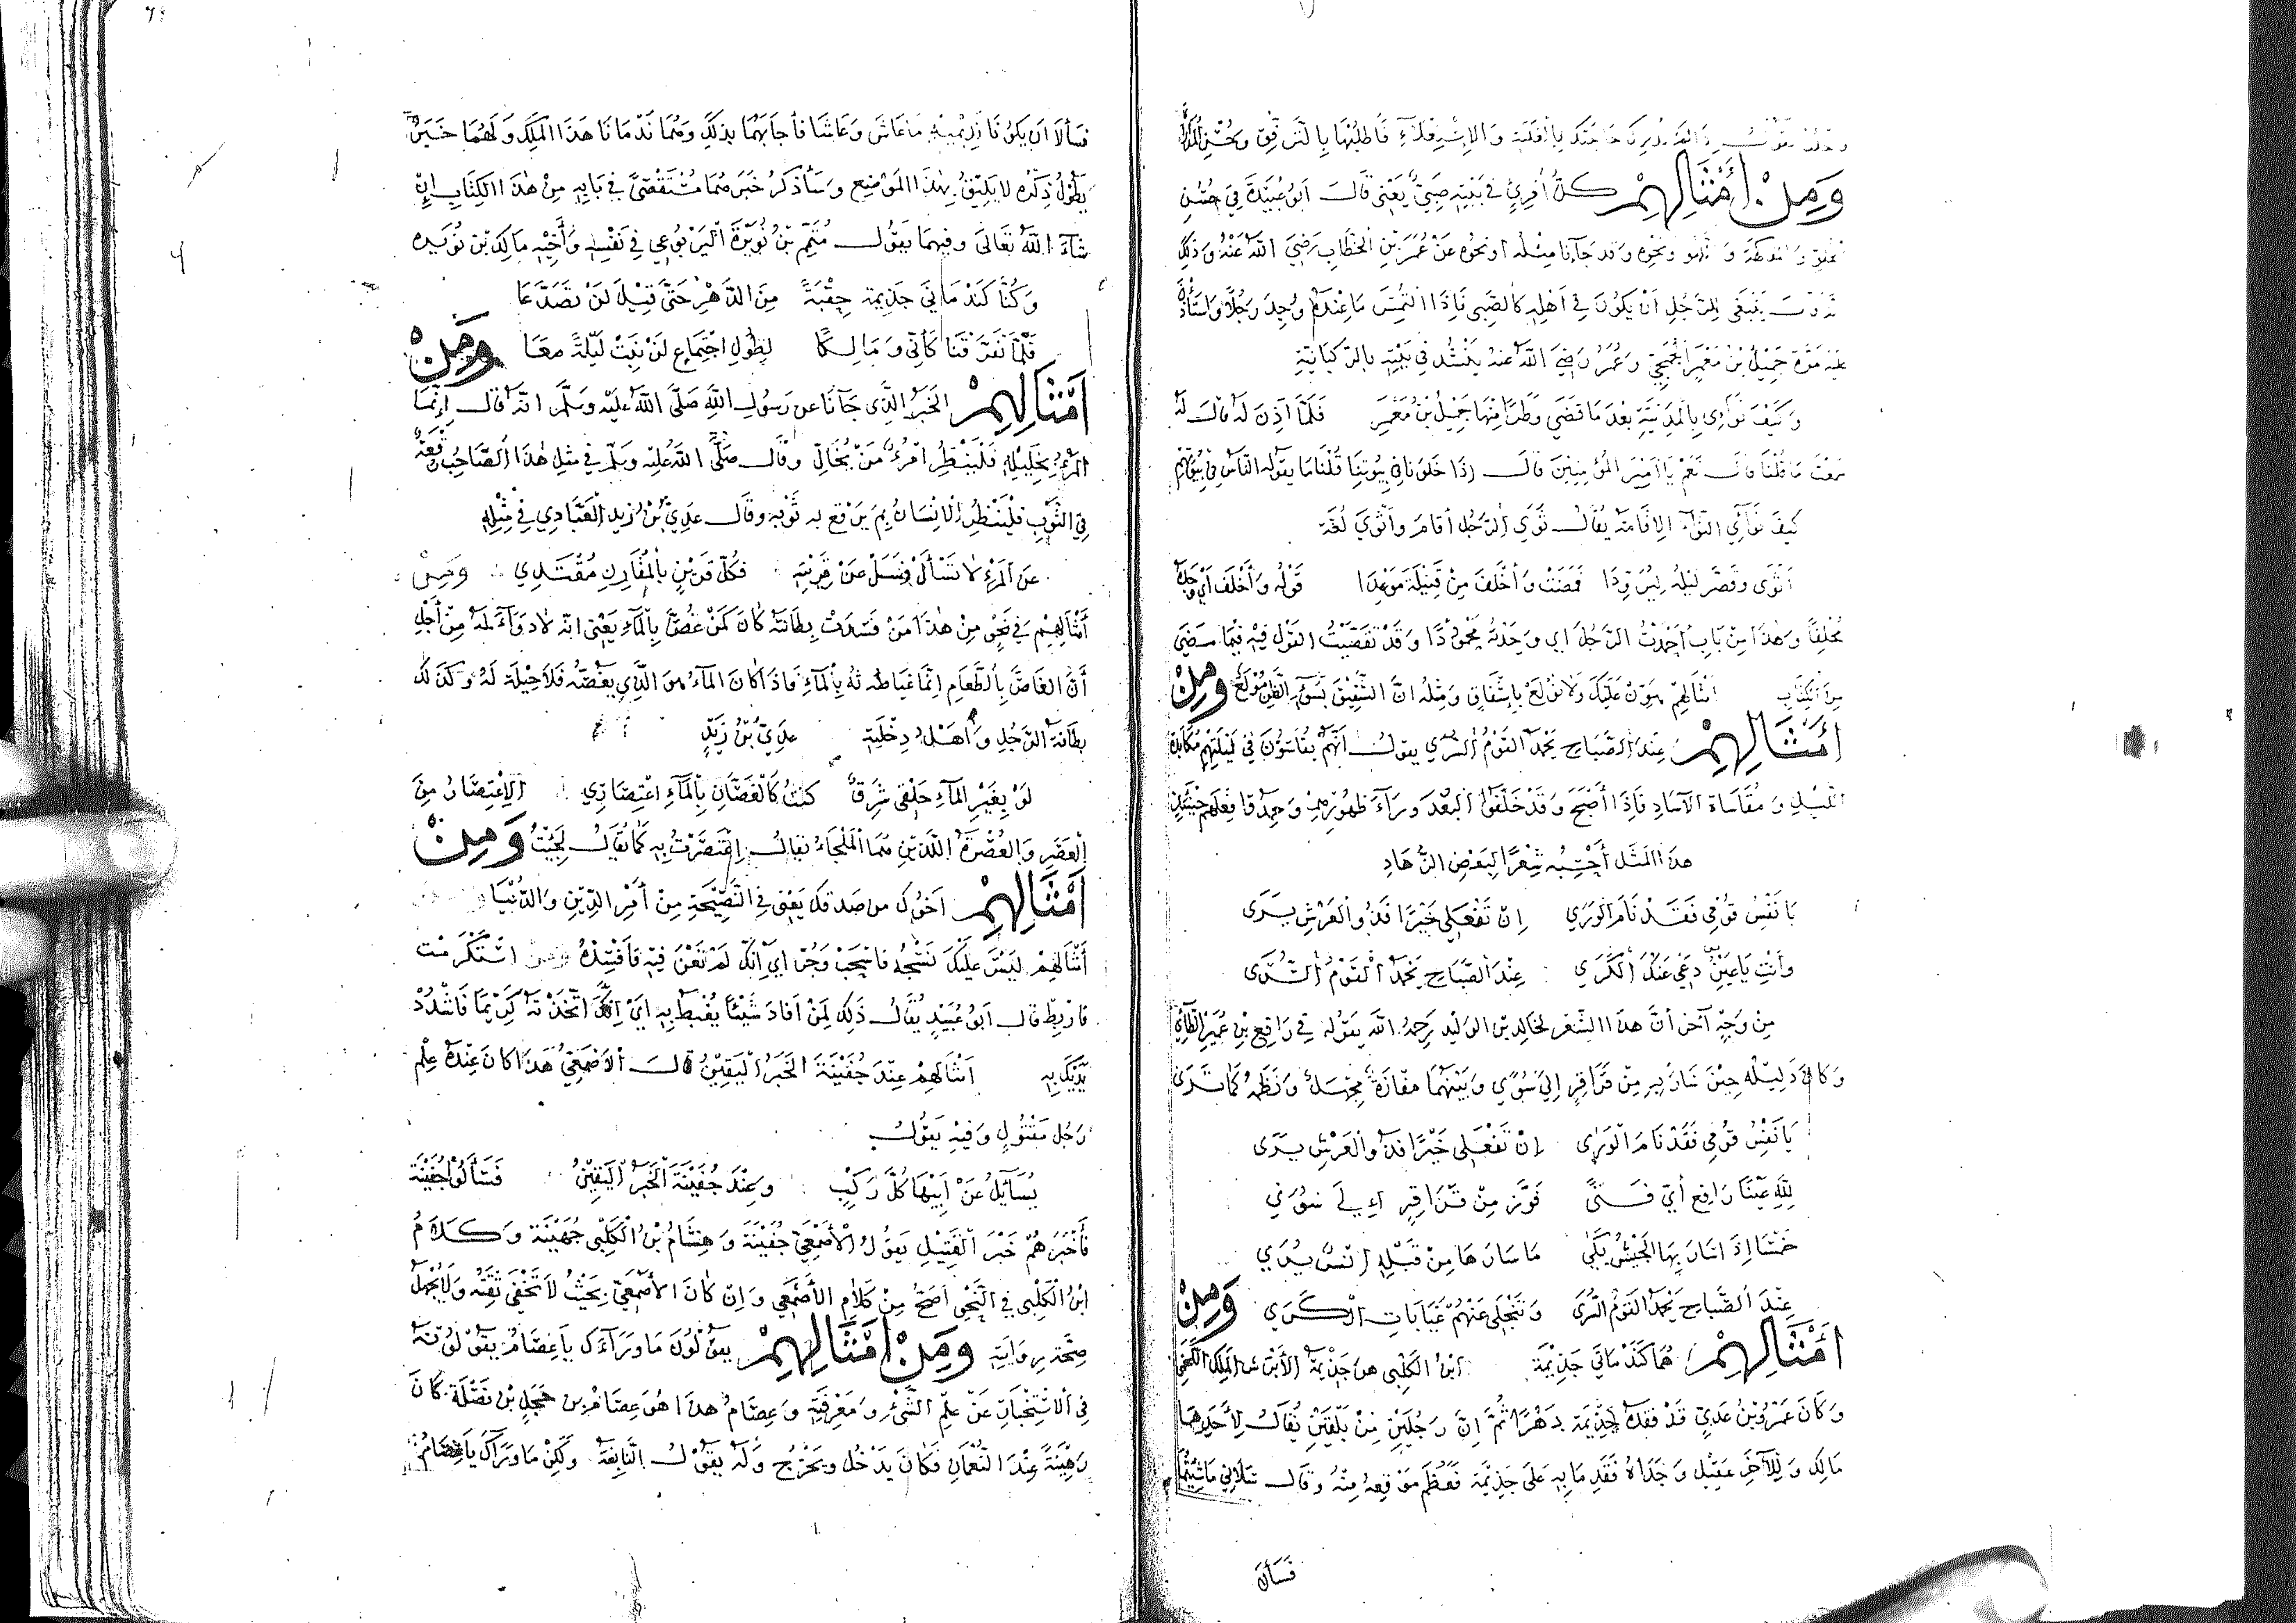 حاجتك بالغلبة والاستقلاء فاطلبها بالترفق وحسن المداراة
ومن أمثالهم كل امرئ في بيته صبي يعني قال ابو عبيدة في حسن
الخلق والفكاهة واللهو ونحوه وقد جآنا مثله او نحوه عن عمر بن الخطاب رضي الله عنه وذلك
ينبغي للرجل أن يكون في اهله كالصبي فاذا التمس ما عنده وجد رجلا واستأذن
عليه مرة جميل بن معمر الجمحي وعمر رضي الله عنه ينشد في بيته بالركبانية
وكيف ثوآي بالمدينة بعد ما قضي وطرا منها جميل بن معمر فلما اذن له قال له
ما قلنا قال نعم يا امير المؤمنين قال اذا خلونا في بيوتنا قلنا ما يقوله الناس في بيوتهم
كيف ثوآئي الثوآء الاقامة يقال ثوي الرجل أقام وأثوي لغة
اثوى وقصر ليله ليزودا فمضت وأخلف من قتيلة موعدا قوله وأخلف اي وجده
مخلفا وهذا من باب أحمدت الرجل اي وجدته محمودا وقد تقصيت القول فيه فيما مضي
من الكتاب امثالهم هون عليك ولا تولع باشفاق ومثله ان الشفيق بسوء الظن مولع ومن
أمثالهم عند الصباح يحمد القوم السري يقول انهم يقاسون في ليلتهم مكابدة
الليل ومقاساة الآساد فاذا أصبح وقد خلفوا البعد ورآء ظهورهم وحمدوا فعلهم حينئذ
هذا المثل أحسبه شعرا لبعض الزهاد
يا نفس قومي فقد نام الوري ان تفعلي خيرا فذو العرش يرى
وأنت يا عين دعي عنك الكري عند الصباح يحمد القوم السرى
من وجه آخر أن هذا الشعر لخالد بن الوليد رحمه الله يقوله في رافع بن عميرة الطائي
وكان دليله حين سار به من قراقر الي سوي وبينهما مفازة مجهل ونظمه كما ترى
يا نفس قومي فقد نام الوري ان تفعلي خيرا فذو العرش يرى
لله عينا رافع أي فتى فوز من قراقر الي سوي
خمسا اذا سار بها الجيش بكي ما سارها من قبله انس يري
عند الصباح يحمد القوم السرى وتنجلي عنهم غيابات الكرى ومن
أمثالهم هما كندماني جذيمة ابن الكلبي هو جذيمة الأبرش الملك اللخمي
وكان عمرو بن عدي قد فقده جذيمة دهرا ثم ان رجلين من بلقين يقال لأحدهما
مالك وللآخر عقيل وجداه فقدما به على جذيمة فعظم موقعه منه وقال سلاني ما شئتما
فسألا
فسألا ان يكونا نديميه ما عاش وعاشا فأجابهما بذلك وهما ندمانا هذا الملك ولهما خبر
يطول ذكره لا يليق بهذا الموضع وسأذكر خبرهما مستقصى في بابه من هذا الكتاب ان
شاء الله تعالى وفيهما يقول متمم بن نويرة اليربوعي في نفسه وأخيه مالك بن نويره
وكنا كندماني جذيمة حقبة من الدهر حتى قيل لن تصدعا
فلما تفرقنا كأني ومالكا لطول اجتماع لن نبت ليلة معا ومن
أمثالهم الخبر الذي جآنا عن رسول الله صلى الله عليه وسلم انه قال انما
المرء بخليله فلينظر امرؤ من يخال وقال صلى الله عليه وسلم في مثل هذا الصاحب رقعة
في الثوب فلينظر الانسان بم يرقع به ثوبه وقال عدي بن زيد العبادي في مثله
عن المرء لا تسأل وسل عن قرينه فكل قرين بالمقارن مقتدي ومن
أمثالهم في نحو من هذا من فسدت بطانته كان كمن غص بالماء يعني انه لا دوآء له من أجل
أن الغاص بالطعام انما غياثه بالمآء فاذا كان المآء هو الذي يغصه فلا حيلة له وكذلك
بطانة الرجل وأهل دخلته عدي بن زيد
لو بغير المآء حلقي شرق كنت كالغصان بالمآء اعتصاري الاعتصار من
العصر والعصرة اللذين هما الملجاء يقال اعتصرت به كما يقال لجيت ومن
أمثالهم اخوك من صدقك يعني في النصيحة من أمر الدين والدنيا
أمثالهم ليس عليك نسجه فاسحب وجر اي انك لم تعن فيه فأفسده ومن استكرمت
فاربط قال ابو عبيد يقال ذلك لمن أفاد شيئا يغبط به اي انك اتخذته كريما فاشدد
يديك به امثالهم عند جفينة الخبر اليقين قال الأصمعي هذا كان عنده علم
رجل مقتول وفيه يقول
يسآيل عن أبيها كل ركب وعند جفينة الخبر اليقين فسألوا جفينة
فأخبرهم خبر القتيل يقول الأصمعي جفينة وهشام بن الكلبي جهينة وكلام
ابن الكلبي في النحو أصح من كلام الأصمعي وان كان الأصمعي بحيث لا تخفى ثقته ولا يجهل
صحة روايته ومن أمثالهم يقولون ما ورآءك يا عصام يقولونه
في الاستخبار عن علم الشيء ومعرفته وعصام هذا هو عصام بن نضلة كان
رهينة عند النعمان فكان يدخل ويخرج وله يقول النابغة ولكن ما ورآك يا عصام